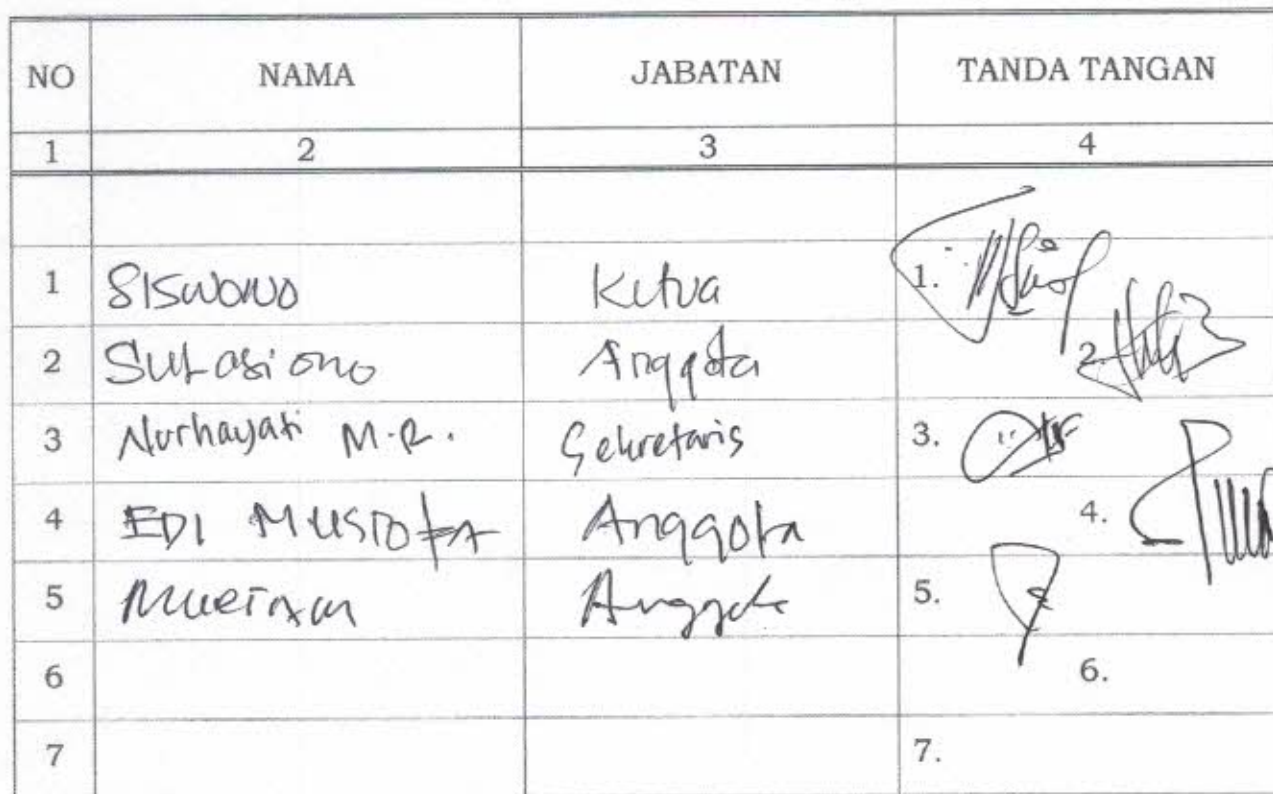 NO NAMA JABATAN TANDA TANGAN
1 2 3 4
1 SISWONO Ketua 1.
2 Anggota 2.
3 Nurhayati M.R. Sekretaris 3.
4 EDI Anggota 4.
5 Anggota 5.
6 6.
7 7.